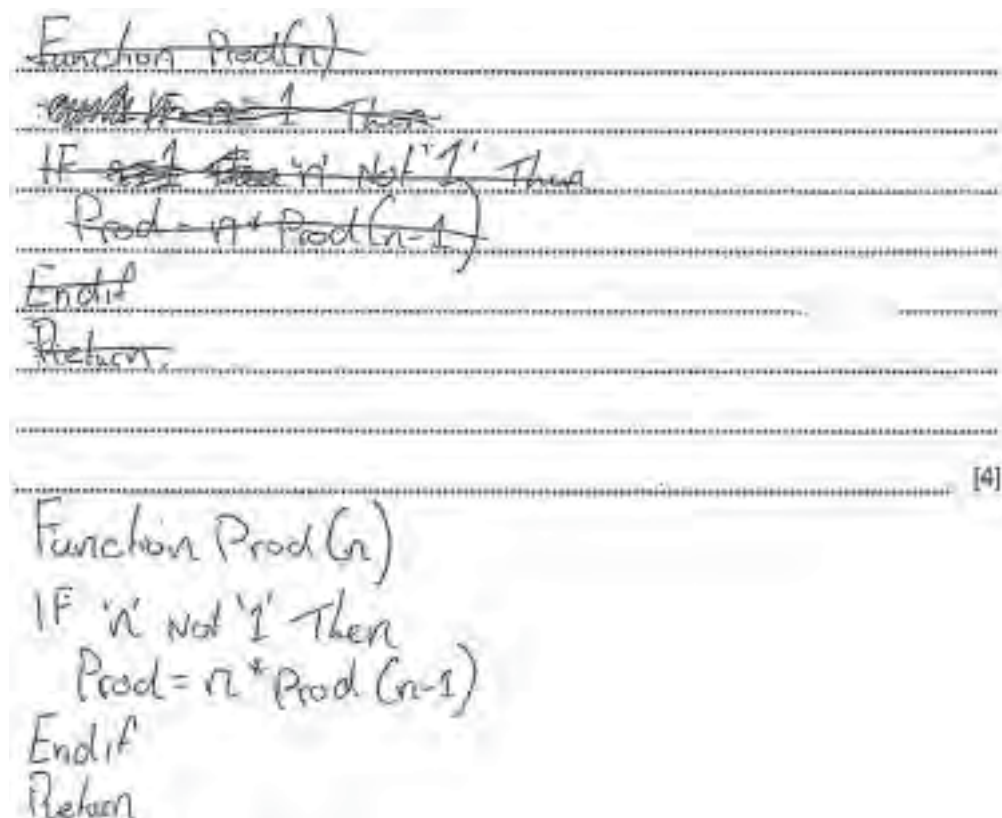 Function Prod(n)
IF n = 1 Then
IF 'n' Not '1' Then
Prod = n * Prod(n-1)
Endif
Return
[4]
Function Prod(n)
IF 'n' Not '1' Then
Prod = n * Prod(n-1)
Endif
Return